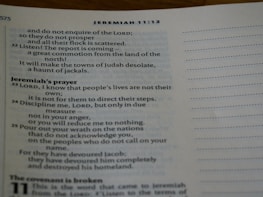 525
JEREMIAH 11:13
and do not enquire of the LORD;
so they do not prosper
and all their flock is scattered.
22 Listen! The report is coming –
a great commotion from the land of the
north!
It will make the towns of Judah desolate,
a haunt of jackals.
Jeremiah's prayer
23 LORD, I know that people's lives are not their
own;
it is not for them to direct their steps.
24 Discipline me, LORD, but only in due
measure –
not in your anger,
or you will reduce me to nothing.
25 Pour out your wrath on the nations
that do not acknowledge you,
on the peoples who do not call on your
name.
For they have devoured Jacob;
they have devoured him completely
and destroyed his homeland.
The covenant is broken
11 This is the word that came to Jeremiah
from the LORD: 2 'Listen to the terms of